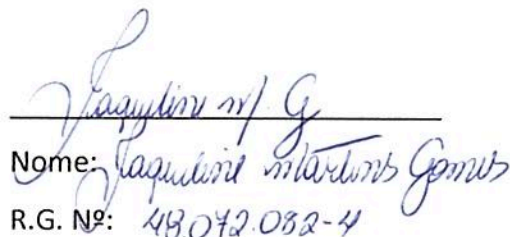 Jaqueline M. G
Nome: Jaqueline Martins Gomes
R.G. Nº: 48.072.082-4